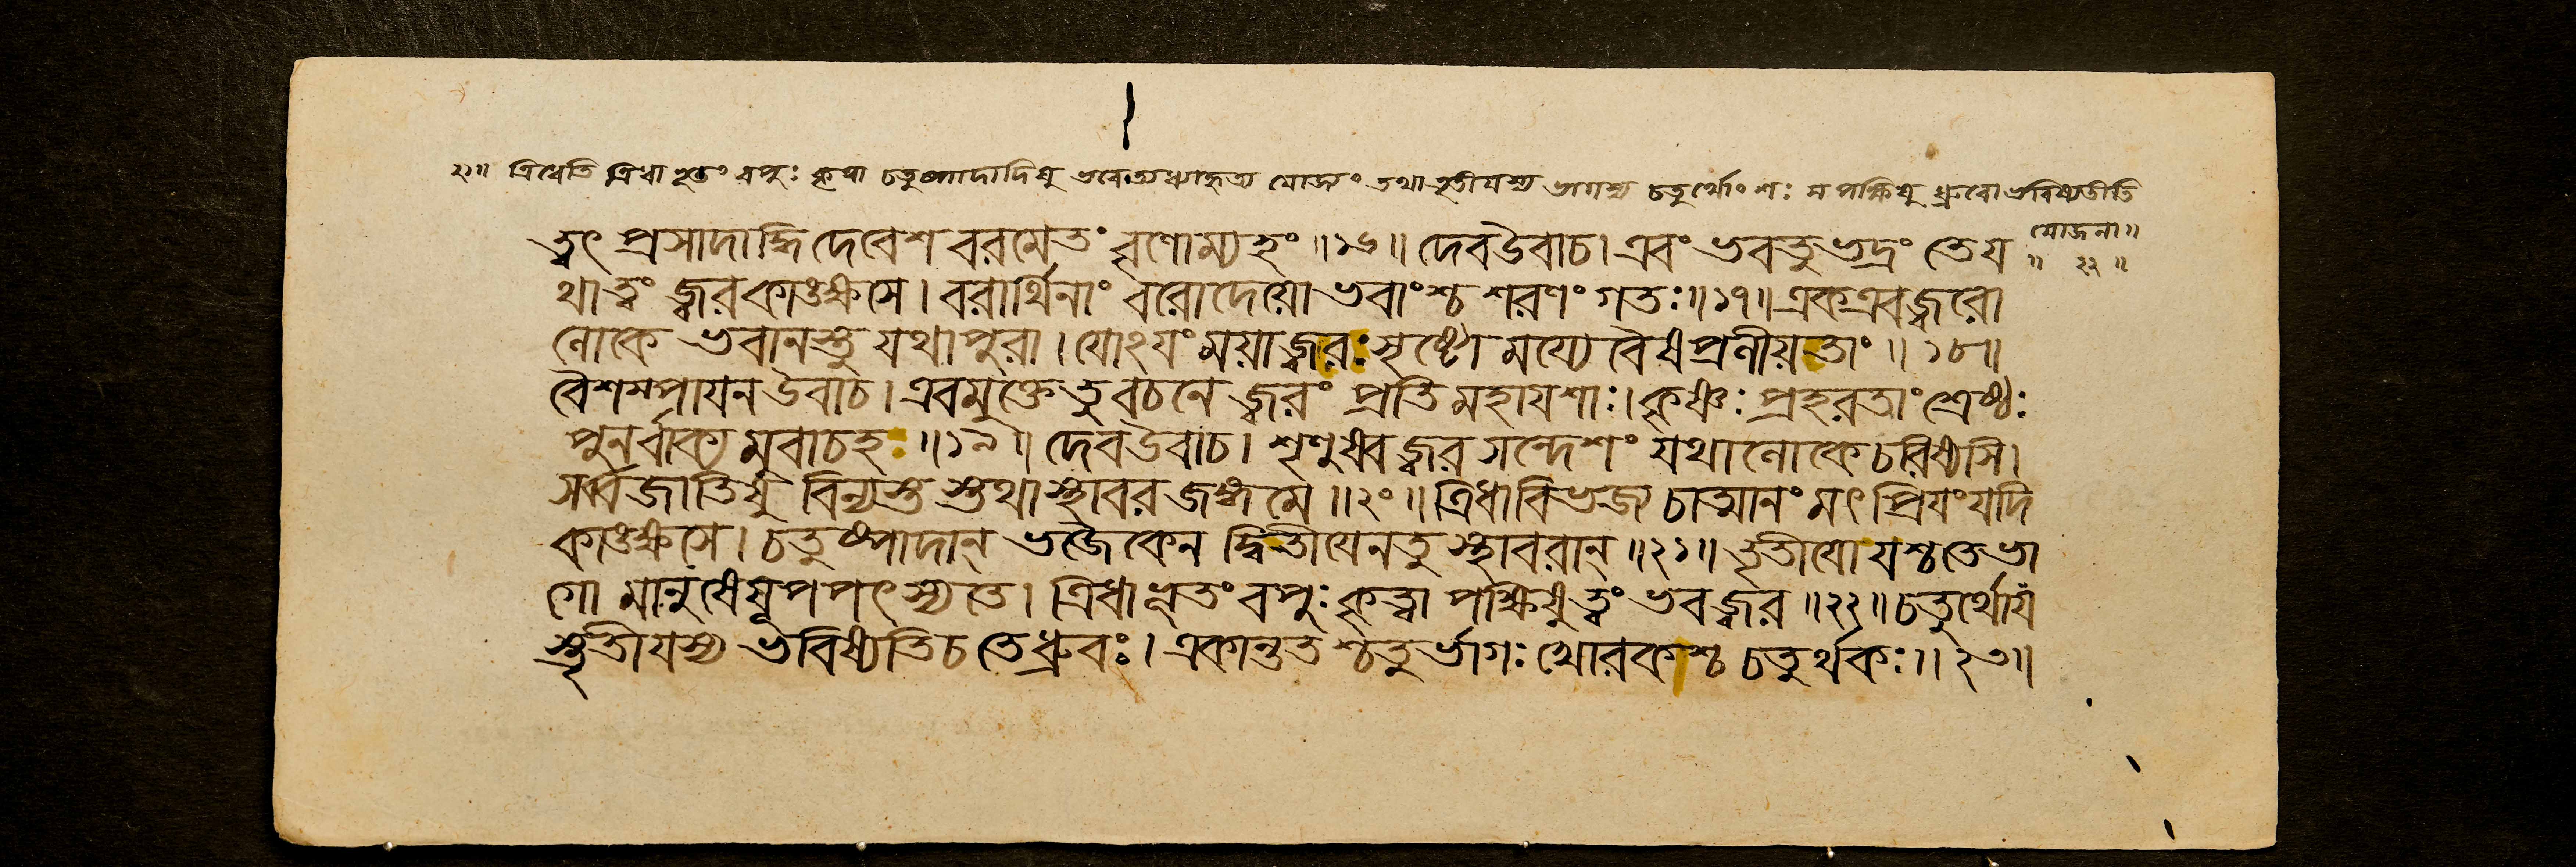 ২২॥ ত্রিধেতি ত্রিধা হৃতং বপুঃ কৃত্বা চতুষ্পাদাদিষু ভবেত্যধ্যাহৃত্য যোজ্যং তথা তৃতীয়স্য ভাগস্য চতুর্থোংশঃ স পক্ষিষু ধ্রুবো ভবিষ্যতীতি
যোজনা॥
॥ ২২ ॥
ত্বৎ প্রসাদাদ্ধি দেবেশ বরমেতং বৃণোম্যহং ॥১৬॥ দেবউবাচ। এবং ভবতু ভদ্রং তে য
থা ত্বং জ্বর কাঙক্ষসে। বরার্থিনাং বরোদেয়ো ভবাংশ্চ শরণং গতঃ॥১৭॥ একএবজ্বরো
লোকে ভবানস্তু যথাপুরা। যোঽযং ময়া জ্বরঃ সৃষ্টো ময্যেবৈষ প্রলীয়তাং ॥ ১৮॥
বৈশম্পাযন উবাচ। এবমুক্তেতু বচনে জ্বরং প্রতি মহাযশাঃ। কৃষ্ণঃ প্রহরতাং শ্রেষ্ঠঃ
পুনর্বাক্য মুবাচহ ॥১৯॥ দেবউবাচ। শৃণুষ্বজ্বর সন্দেশং যথালোকে চরিষ্যসি।
সর্ব্বজাতিষু বিন্যস্ত স্তথা স্থাবর জঙ্গমে ॥২০॥ ত্রিধাবিভজ্য চাত্মানং মৎ প্রিযংযদি
কাঙক্ষসে। চতুষ্পাদান্ ভজৈকেন দ্বিতীযেনতু স্থাবরান্ ॥২১॥ তৃতীযো যশ্চতে ভা
গো মানুষেষূপপৎস্যতে। ত্রিধাহৃতং বপুঃ কৃত্বা পক্ষিষু ত্বং ভবজ্বর ॥২২॥ চতুর্থোযং
স্তৃতীযস্য ভবিষ্যতি চ তে ধ্রুবঃ। একান্তত শ্চতুর্ভাগঃ খোরকশ্চ চতুর্থকঃ॥ ২৩॥